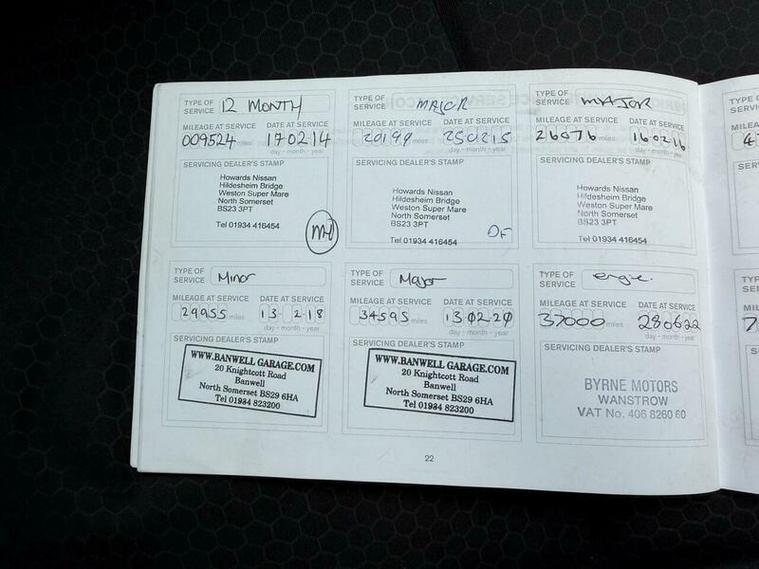 TYPE OF SERVICE 12 MONTH
MILEAGE AT SERVICE DATE AT SERVICE
009524 miles 170214
day - month - year
SERVICING DEALER'S STAMP
Howards Nissan
Hildesheim Bridge
Weston Super Mare
North Somerset
BS23 3PT
Tel 01934 416454
TYPE OF SERVICE MAJOR
MILEAGE AT SERVICE DATE AT SERVICE
20199 miles 250215
day - month - year
SERVICING DEALER'S STAMP
Howards Nissan
Hildesheim Bridge
Weston Super Mare
North Somerset
BS23 3PT
Tel 01934 416454
DF
TYPE OF SERVICE MAJOR
MILEAGE AT SERVICE DATE AT SERVICE
26076 miles 160216
day - month - year
SERVICING DEALER'S STAMP
Howards Nissan
Hildesheim Bridge
Weston Super Mare
North Somerset
BS23 3PT
Tel 01934 416454
TYPE OF SERVICE Minor
MILEAGE AT SERVICE DATE AT SERVICE
29955 miles 13 2 18
day - month - year
SERVICING DEALER'S STAMP
WWW.BANWELL GARAGE.COM
20 Knightcott Road
Banwell
North Somerset BS29 6HA
Tel 01934 823200
TYPE OF SERVICE Major
MILEAGE AT SERVICE DATE AT SERVICE
34595 miles 13 02 20
day - month - year
SERVICING DEALER'S STAMP
WWW.BANWELL GARAGE.COM
20 Knightcott Road
Banwell
North Somerset BS29 6HA
Tel 01934 823200
TYPE OF SERVICE engine.
MILEAGE AT SERVICE DATE AT SERVICE
37000 miles 280622
day - month - year
SERVICING DEALER'S STAMP
BYRNE MOTORS
WANSTROW
VAT No. 406 8260 60
22